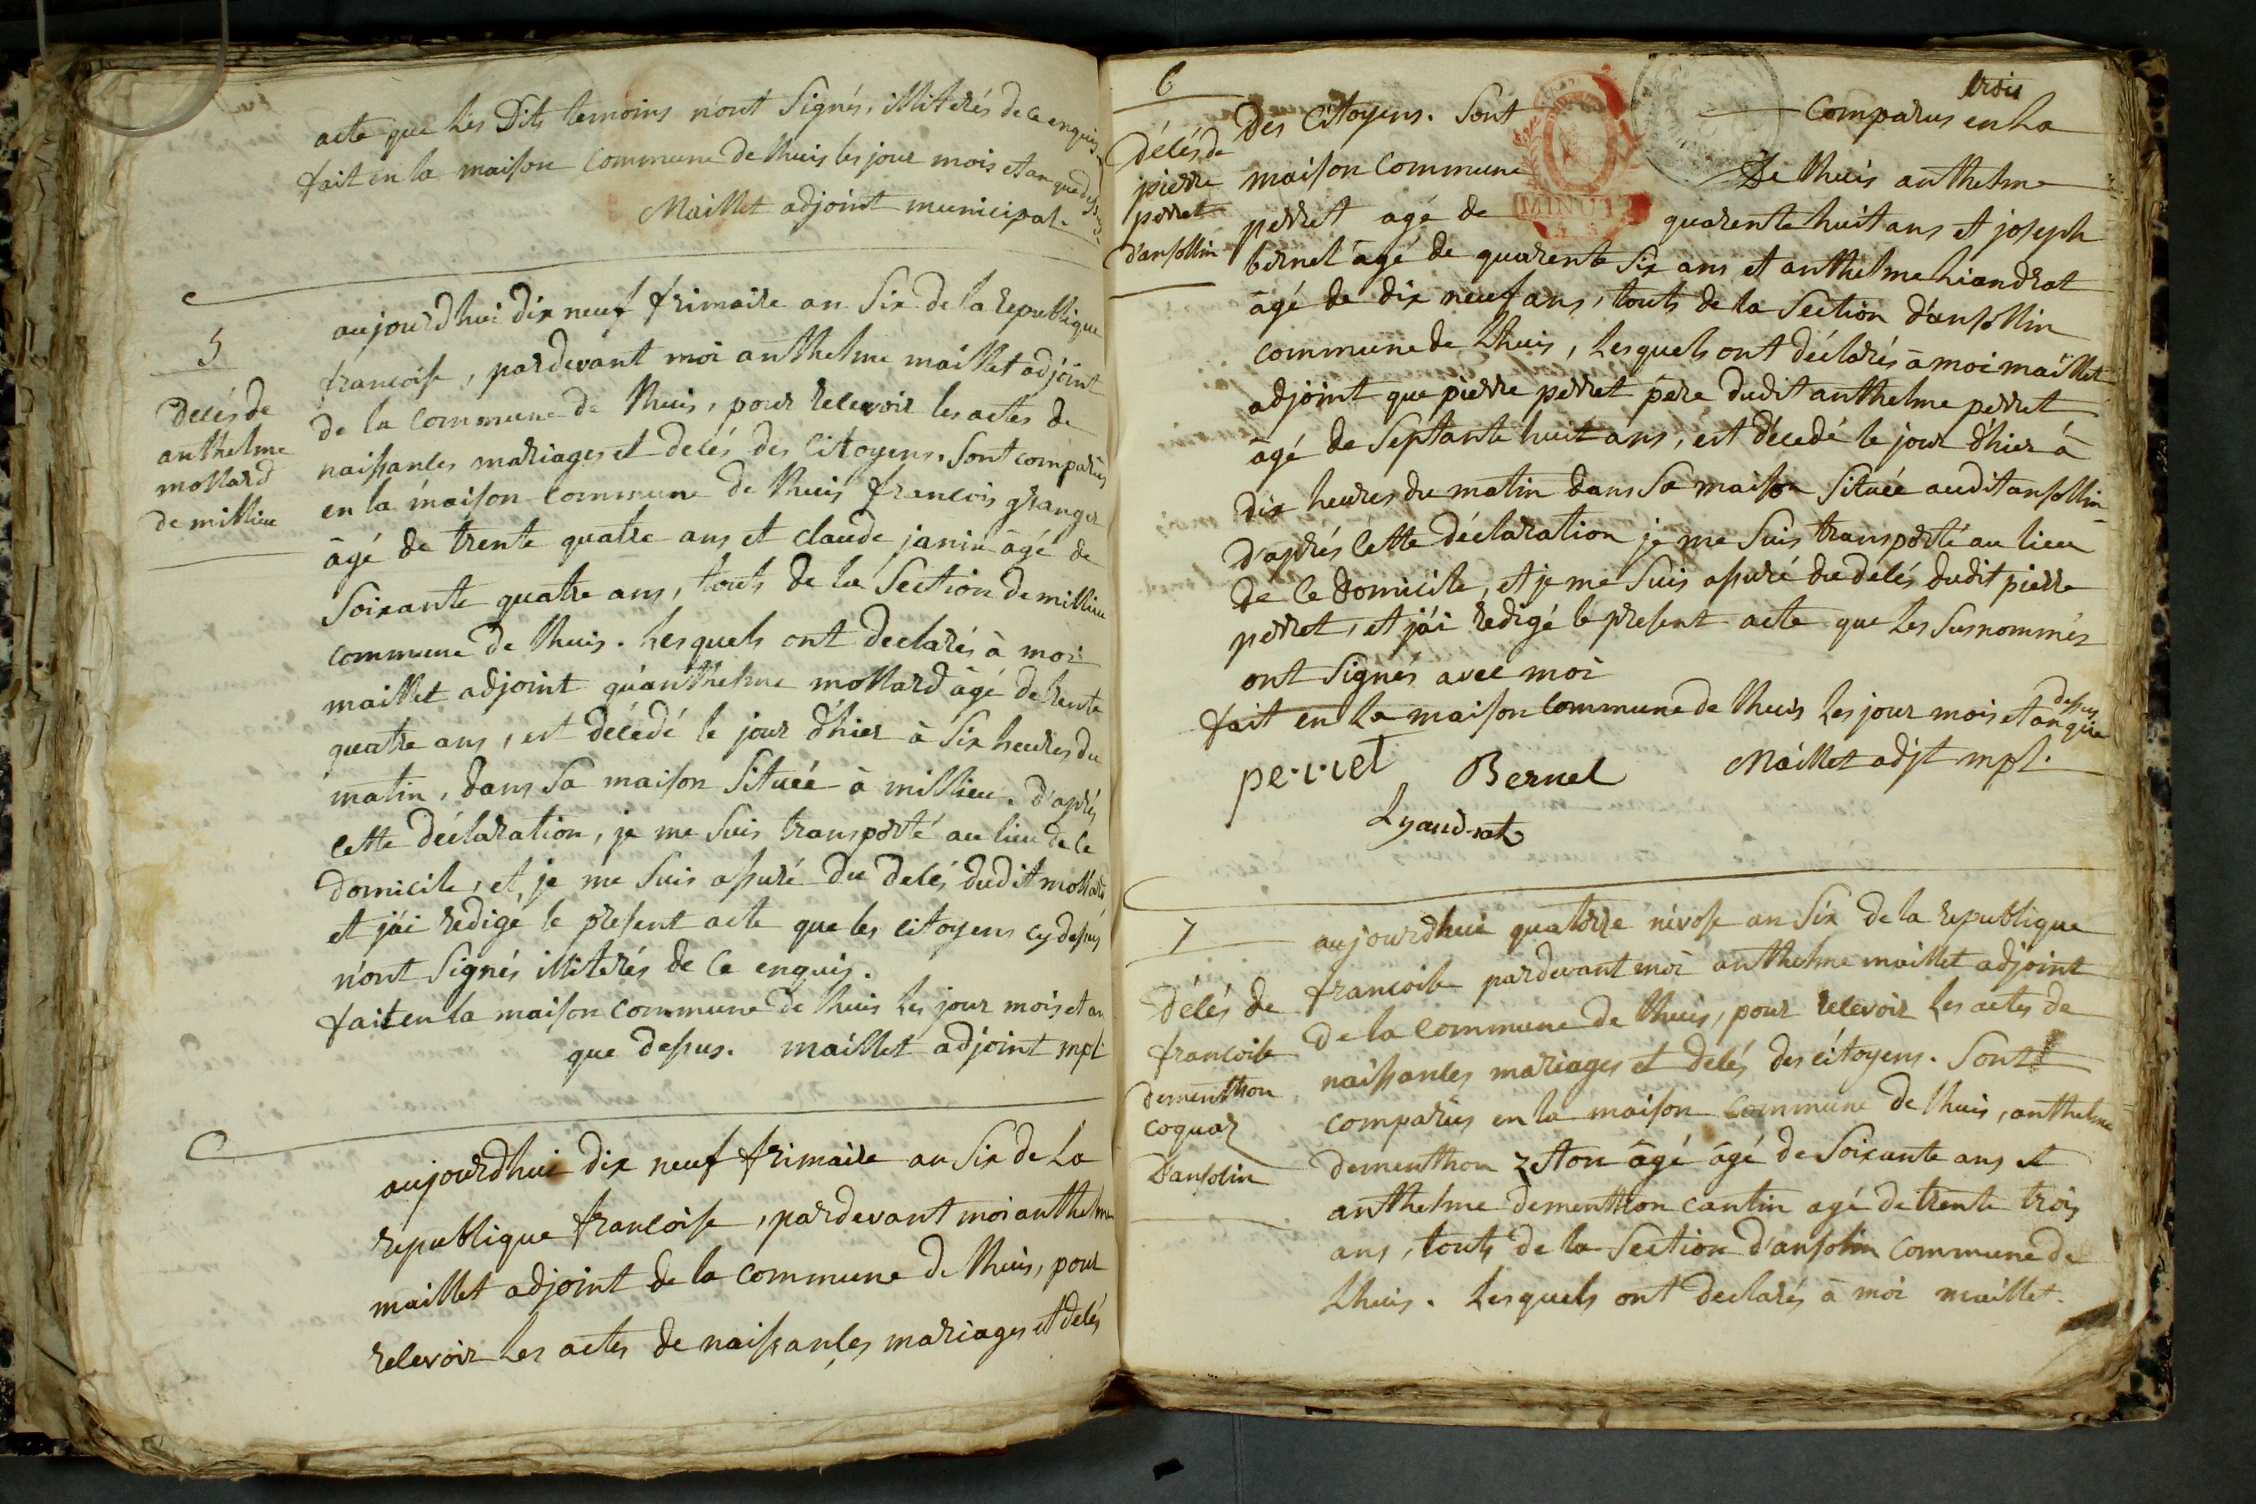 acte que les Dits temoins n'ont Signés, illiterés de ce enquis
fait en la maison commune de lhuis les jour mois et an que dessus
Maillet adjoint municipal.
5
Décés de
anthelme
mollard
de millieu
aujourdhui dix neuf frimaire an Six de la Republique
francoise, pardevant moi anthelme maillet adjoint
de la commune de lhuis, pour recevoir les actes de
naissances mariages et decés des Citoyens. Sont comparus
en la maison commune de lhuis francois granger
âgé de trente quatre ans et claude janin âgé de
Soixante quatre ans, touts de la Section de millieu
commune de lhuis. Lesquels ont declarés à moi
maillet adjoint qu'anthelme mollard âgé de trente
quatre ans, est décédé le jour d'hier à Six heures du
matin, dans Sa maison Située à millieu. D'après
cette déclaration, je me Suis transporté au lieu de ce
domicile, et je me Suis assuré du decés dudit mollard
et j'ai redigé le present acte que les citoyens cy dessus
n'ont Signés illiterés de ce enquis.
fait en la maison commune de lhuis les jour mois et an
que dessus. maillet adjoint mpl
aujourdhui dix neuf frimaire an Six de la
republique francoise, pardevant moi anthelme
maillet adjoint de la commune de lhuis, pour
recevoir les actes de naissances mariages et decés
trois
6
Décés de
pierre
perret
d'ansollin
Des Citoyens. Sont comparus en la
maison commune De lhuis anthelme
MINUTE
perret agé de quarente huit ans et joseph
bernel âgé de quarente Six ans et anthelme liandrat
âgé de dix neuf ans, touts de la Section d'ansollin
commune de Lhuis, Lesquels ont déclarés à moi maillet
adjoint que pierre perret pere dudit anthelme perret
âgé de Septante huit ans, est décedé le jour d'hier à
dix heures du matin dans Sa maison Située audit ansollin
D'aprés Cette déclaration je me Suis transporté au lieu
de ce domicile, et je me Suis assuré du décés dudit pierre
perret, et j'ai redigé le present acte que les Susnommés
ont Signés avec moi
fait en la maison commune de lhuis les jour mois et an que dessus
perret Bernel Maillet adjt mpl.
Lyandrat
7
Décés de
francoise
dementhon
coquaz
D'ansolin
aujourdhui quatorze nivose an Six de la republique
francoise pardevant moi anthelme maillet adjoint
de la commune de lhuis, pour recevoir les actes de
naissances mariages et decés des citoyens. Sont
comparus en la maison commune de lhuis, anthelme
dementhon zeton âgé agé de Soixante ans et
anthelme dementhon cantin agé de trente trois
ans, touts de la Section d'ansolin commune de
Lhuis. Lesquels ont declarés à moi maillet.